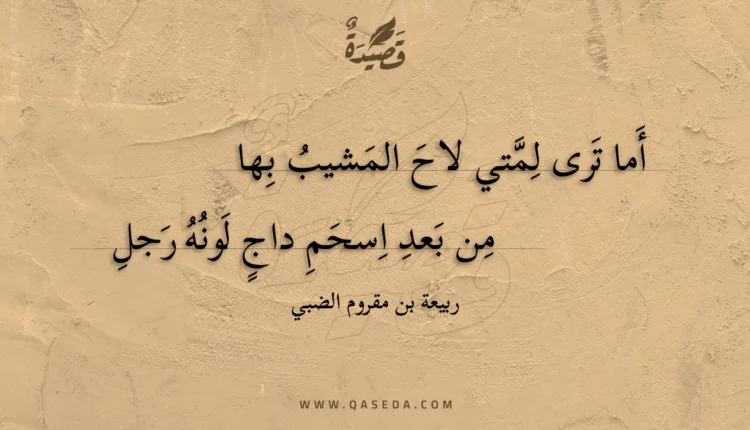 قَصِيْدَةٌ
أَما تَرى لِمَّتي لاحَ المَشيبُ بِها
مِن بَعدِ اِسحَمِ داجٍ لَونُهُ رَجلِ
ربيعة بن مقروم الضبي
WWW.QASEDA.COM